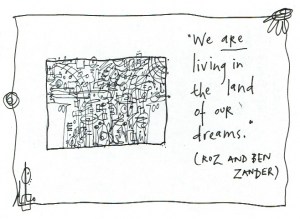 "We are
living in
the land
of our
dreams."
(ROZ AND BEN
ZANDER)